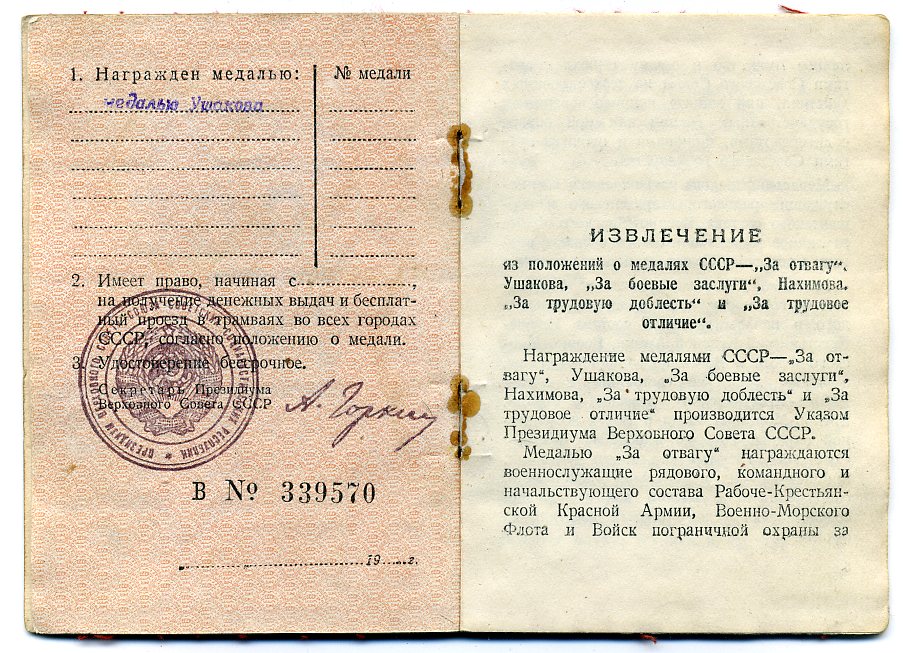 1. Награжден медалью:
№ медали
медалью Ушакова
2. Имеет право, начиная с..............,
на получение денежных выдач и бесплат-
ный проезд в трамваях во всех городах
СССР, согласно положению о медали.
3. Удостоверение бессрочное.
Секретарь Президиума
Верховного Совета СССР
А. Горкин
В № 339570
19......г.
ИЗВЛЕЧЕНИЕ
из положений о медалях СССР—„За отвагу“,
Ушакова, „За боевые заслуги“, Нахимова,
„За трудовую доблесть“ и „За трудовое
отличие“.
Награждение медалями СССР—„За от-
вагу“, Ушакова, „За боевые заслуги“,
Нахимова, „За трудовую доблесть“ и „За
трудовое отличие“ производится Указом
Президиума Верховного Совета СССР.
Медалью „За отвагу“ награждаются
военнослужащие рядового, командного и
начальствующего состава Рабоче-Крестьян-
ской Красной Армии, Военно-Морского
Флота и Войск пограничной охраны за